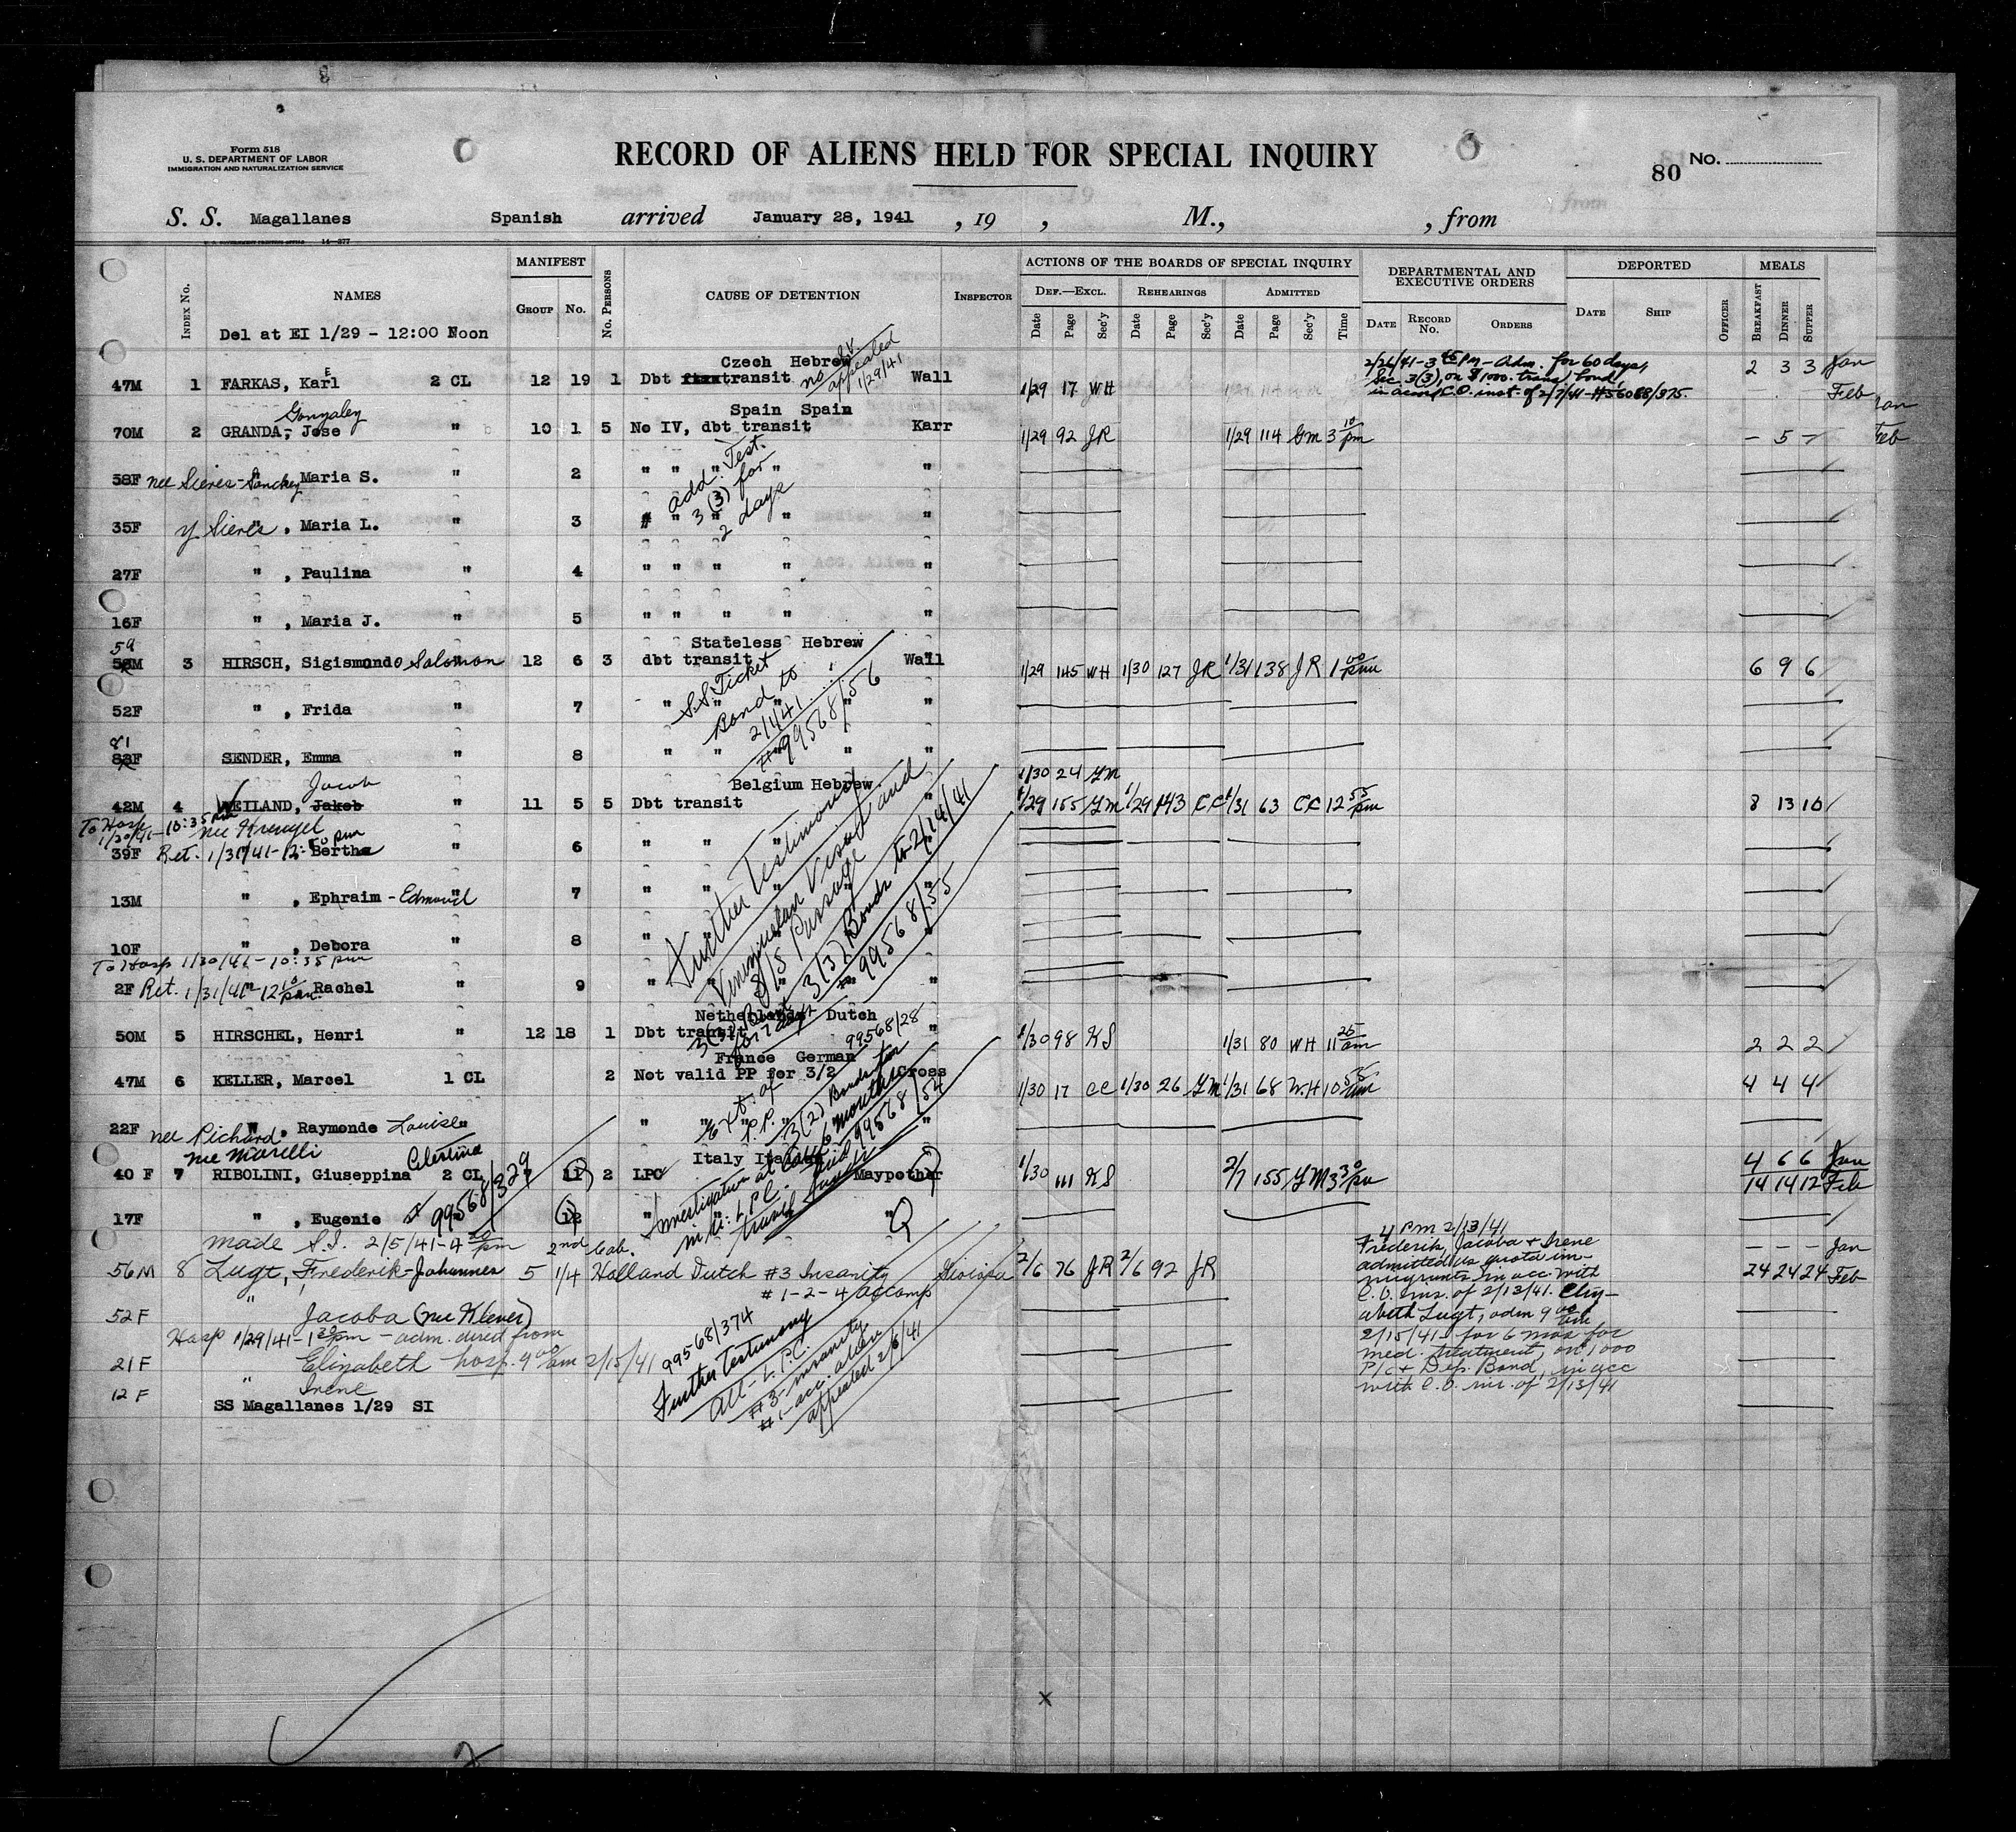 Form 518
U. S. DEPARTMENT OF LABOR
IMMIGRATION AND NATURALIZATION SERVICE
RECORD OF ALIENS HELD FOR SPECIAL INQUIRY
80 No.
S. S. Magallanes Spanish arrived January 28, 1941 , 19 , M., , from
14—377
INDEX No. NAMES MANIFEST GROUP No. No. PERSONS CAUSE OF DETENTION INSPECTOR
ACTIONS OF THE BOARDS OF SPECIAL INQUIRY
DEF.—EXCL. Date Page Sec'y REHEARINGS Date Page Sec'y ADMITTED Date Page Sec'y Time
DEPARTMENTAL AND EXECUTIVE ORDERS DATE RECORD No. ORDERS
DEPORTED DATE SHIP OFFICER MEALS BREAKFAST DINNER SUPPER
Del at EI 1/29 - 12:00 Noon
Czech Hebrew
47M 1 FARKAS, Karl 2 CL 12 19 1 Dbt transit Wall 1/29 17 WH 2 3 3 Jan
Feb
no appealed 1/29/41
2/26/41-3 45 pm - Adm. for 60 days,
Sec. 3(3), on $1000. trans. bond,
in acc C.O. inst. of 2/7/41 - 56088/975.
Gonzalez
Spain Spain
70M 2 GRANDA, Jose " 10 1 5 No IV, dbt transit Karr 1/29 92 JR 1/29 114 GM 3 10 pm - 5 -
Jan
Feb
58F nee Sieres-Sanchez, Maria S. " 2 " " " " "
add. Test.
3(3) for
2 days
35F y Sieres, Maria L. " 3 " " " "
27F " , Paulina " 4 " " " " "
16F " , Maria J. " 5 " " " " "
Stateless Hebrew
59
58M 3 HIRSCH, Sigismondo Salomon 12 6 3 dbt transit Wall 1/29 145 WH 1/30 127 JR 1/31 138 JR 1 00 pm 6 9 6
S.S. Ticket
Bond to
2/1/41
99568/56
52F " , Frida " 7 " " " "
81
83F SENDER, Emma " 8 " " " "
Belgium Hebrew 1/30 24 GM
Jacob
42M 4 WEILAND, Jakob " 11 5 5 Dbt transit " 1/29 155 GM 1/29 143 CC 1/31 63 CC 12 55 pm 8 13 10
To Hosp 1/30/41-10:35 pm
39F Ret. 1/31/41-12:10 pm Bertha " 6 " "
Further Testimony
Venezuelan Visa and
S/S Passage
3(3) Bonds to 2/14/41
99568/55
13M " , Ephraim - Edmund " 7 " " "
10F " , Debora " 8 "
To Hosp 1/30/41-10:35 pm
2F Ret. 1/31/41-12 10 pm. Rachel " 9 " "
Netherlands Dutch
50M 5 HIRSCHEL, Henri " 12 18 1 Dbt transit " 1/30 98 KS 1/31 80 WH 11 25 am 2 2 2
for 7 days
99568/28
France German
47M 6 KELLER, Marcel 1 CL 2 Not valid PP for 3/2 Cross 1/30 17 CC 1/30 26 GM 1/31 68 WH 10 55 am 4 4 4
Ext. of P.P.
3(2) Bonds for
6 months
99568/54
22F nee Pichard, Raymonde Louise " " " "
nee Morelli Celestina
Italy Italian
40 F 7 RIBOLINI, Giuseppina 2 CL 7 11 2 LPC Maypother 1/30 111 KS 2/7 155 GM 3 30 pm 4 6 6 Jan
14 14 12 Feb
17F " , Eugenie 99568/329 12 " "
made S.I. 2/5/41-4 20 pm 2nd Cab.
56M 8 Lugt, Frederik-Johannes 5 1/4 Holland Dutch #3 Insanity 2/6 76 JR 2/6 92 JR - - - Jan
24 24 24 Feb
#1-2-4 accomp
52 F " Jacoba (nee Klever)
Hosp 1/29/41-1 30 pm - adm. direct from
21 F Elizabeth hosp. 9 00 am 2/15/41
12 F " Irene
99568/374
Further Testimony
All - L.P.C.
#3 - insanity
#1 - acc. alien
appealed 2/6/41
4 pm 2/13/41
Frederik, Jacoba + Irene
admitted as quota im-
migrants in acc. with
C.O. ins. of 2/13/41. Eliz-
abeth Lugt, adm 9 00 am
2/15/41 for 6 mos for
med. treatment, on 1000
P/C + Dep. Bond, in acc
with C.O. ins. of 2/13/41
SS Magallanes 1/29 SI
x